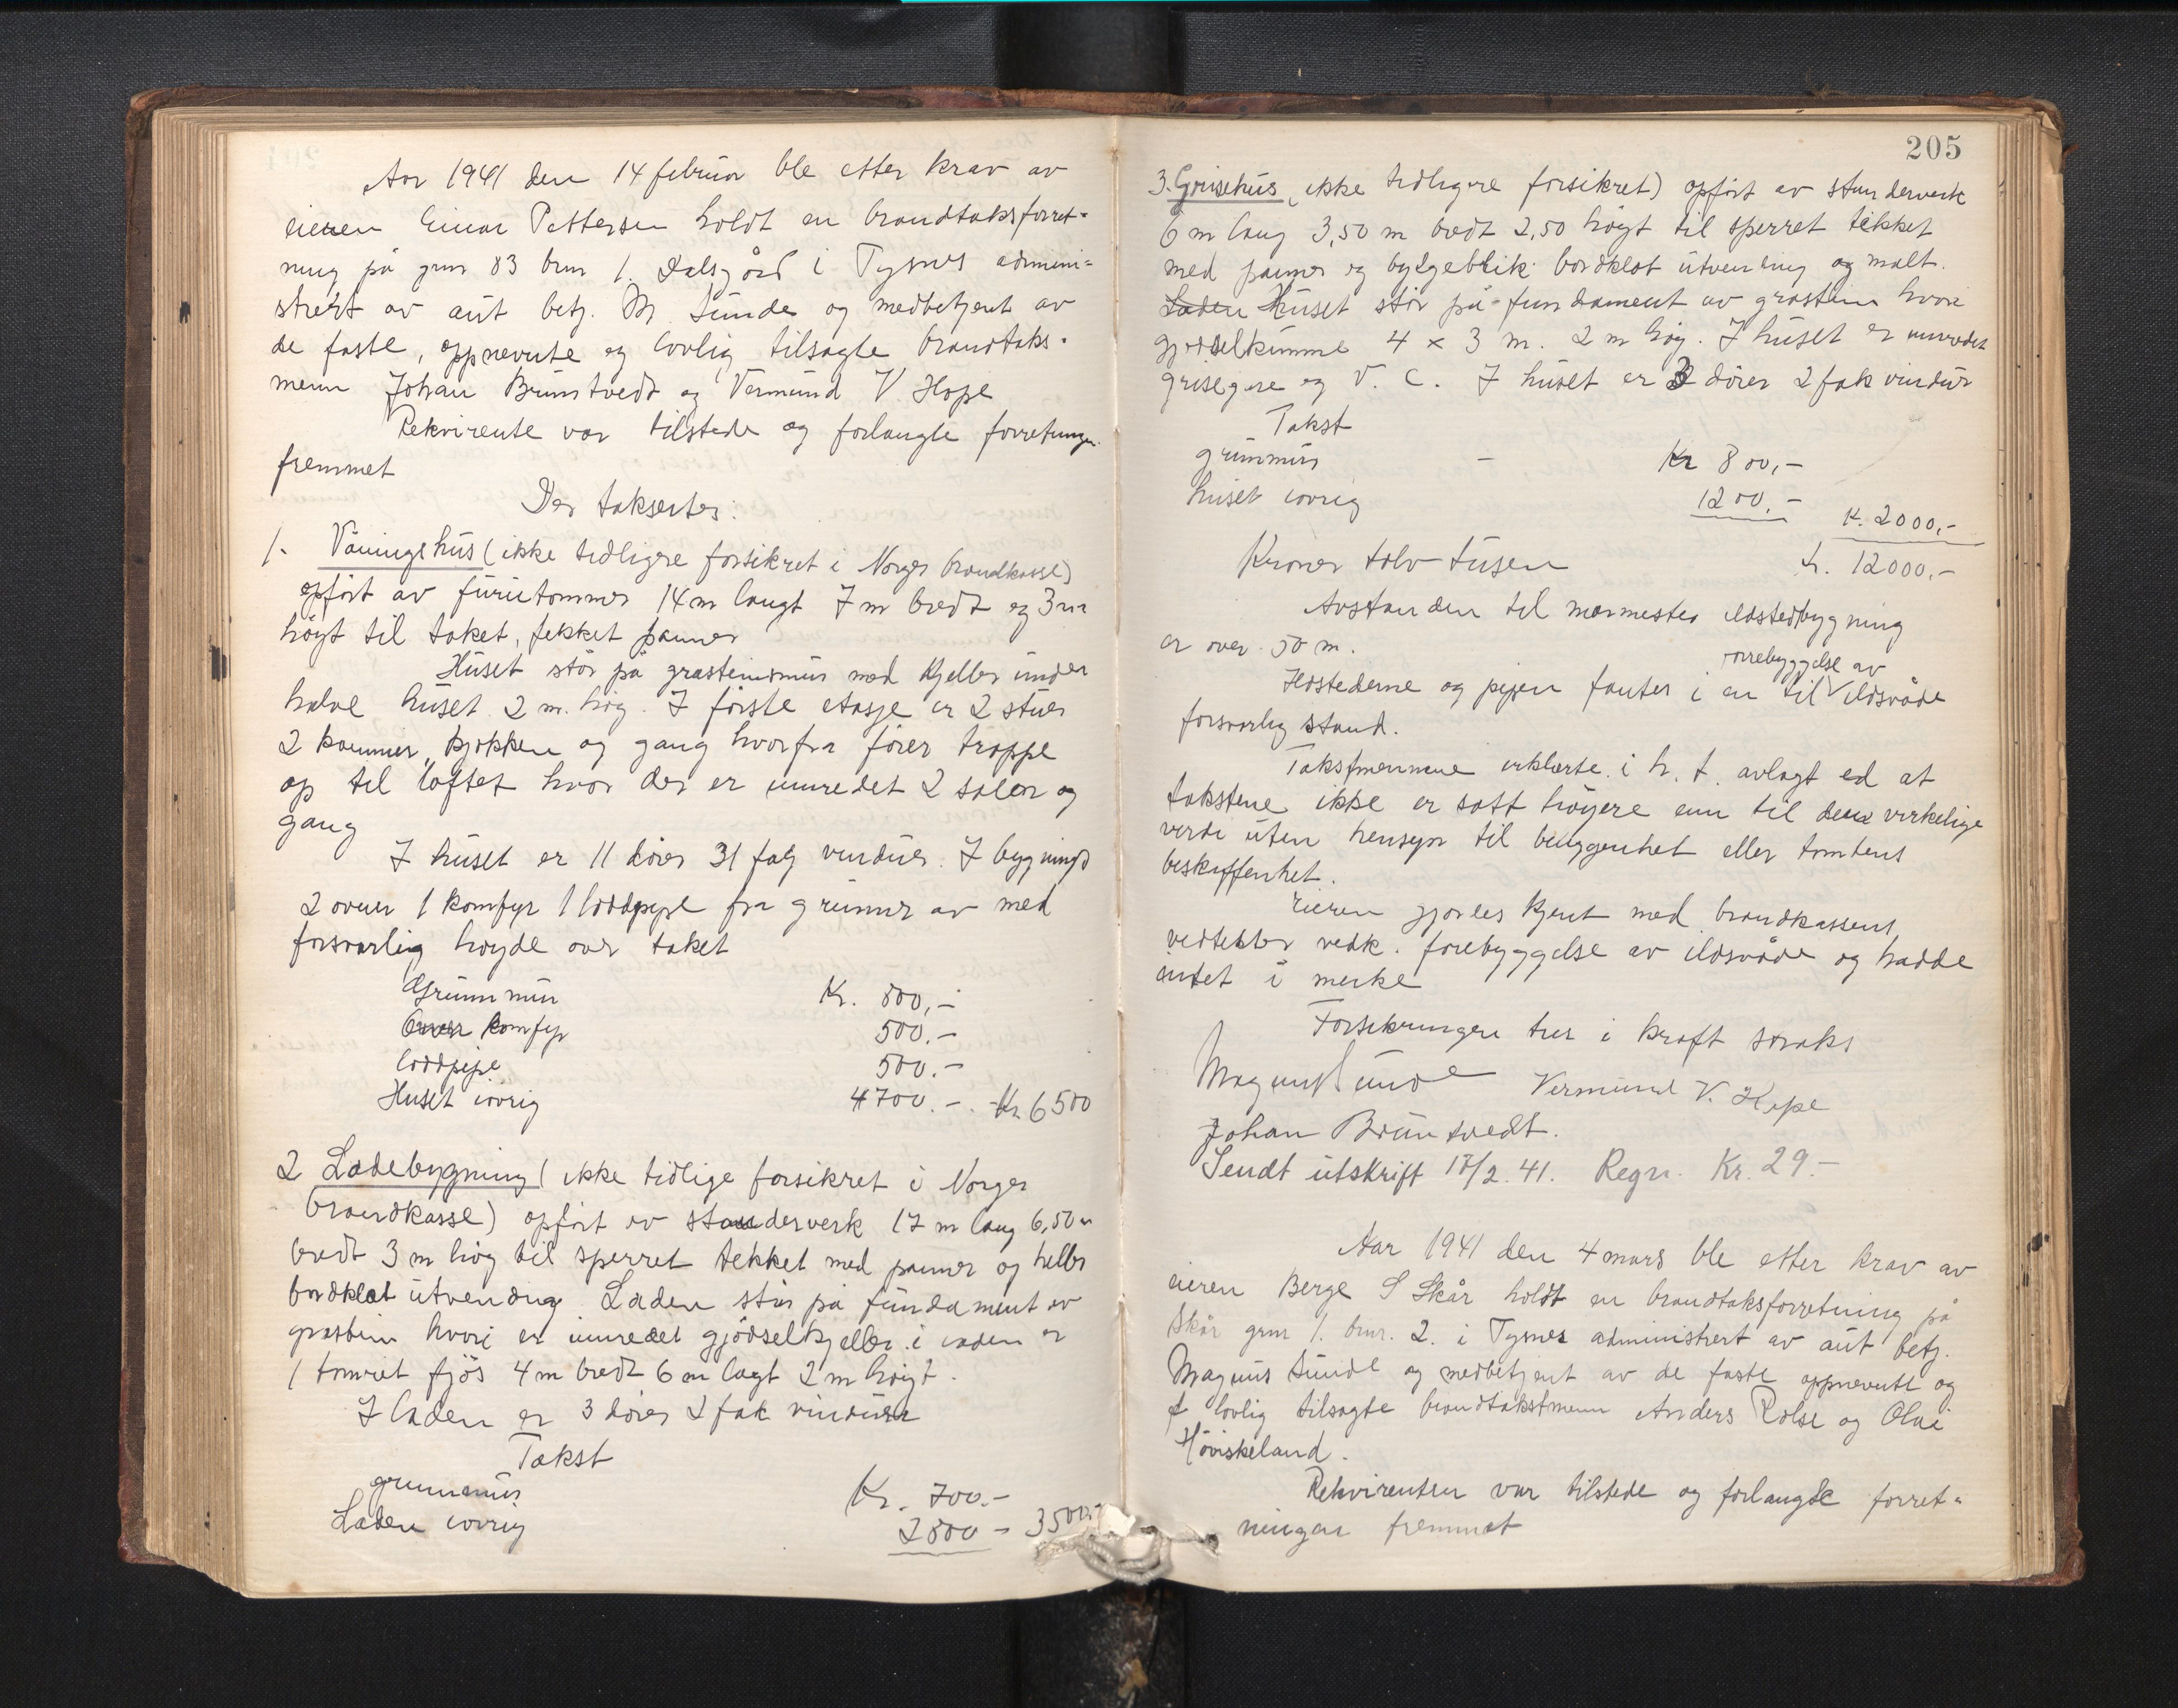 Aar 1941 den 14 februar ble etter krav av
eieren Einar Pettersen holdt en brandtaksforret=
ning på grnr 83 brnr 1. Dalsgård i Tysnes admini=
strert av aut betj. M. Sunde og medbetjent av
de faste, oppnevnte og lovlig tilsagte brandtaks-
menn Johan Bruntvedt og Vermund V. Hope
Rekvirente var tilstede og forlangte forretningen
fremmet
Der taksertes:
1. Våningshus (ikke tidligere forsikret i Norges brandkasse)
opført av furutømmer 14 m langt 7 m bredt og 3 m
høgt til taket, tekket panner
Huset står på gråsteinsmur med kjeller under
halve huset 2 m. høg. I første etasje er 2 stuer
2 kammer, kjøkken og gang hvorfra fører trappe
op til loftet hvor der er innredet 2 saler og
gang
I huset er 11 dører 31 fag vinduer. I bygningd
2 ovner 1 komfyr 1 loddpipe fra grunnen av med
forsvarlig høyde over taket
Grunnmur Kr. 800,-
Ovner komfyr 500.-
loddpipe 500.-
Huset iøvrig 4700.- . Kr. 6500
2 Ladebygning (ikke tidlige forsikret i Norges
brandkasse) opført av standerverk 17 m lang 6,50 m
bredt 3 m høg til sperret tekket med panner og heller
bordkledt utvendig. Laden står på fundament av
gråstein hvori er innredet gjødselkjeller. i laden er
1 tømret fjøs 4 m bredt 6 m lagt 2 m høigt.
I laden er 3 dører 2 fak vinduer
Takst
grunnmur Kr. 700.-
Laden iøvrig 2800 - 3500.-
205
3. Grisehus (ikke tidligere forsikret) opført av standerverk
6 m lang 3,50 m bredt 2,50 høgt til sperret tekket
med panner og bylgeblik bordkledt utvending og malt.
Laden Huset står på fundament av gråstein hvori
gjødselkumme 4 x 3 m. 2 m høg. I huset er innredet
grisegare og V. C. I huset er 3 dører 2 fak vindur
Takst
grunmur - Kr 800,-
huset iøvrig 1200.- K. 2000,-
Kroner tolv tusen kr. 12000.-
Avstanden til nærmestes ildstedbygning
er over 50 m.
forrebyggelse av
Ildstederne og pipen fantes i en til ildsvåde
forsvarlig stand.
Takstmennene erklærte i h. t. avlagt ed at
takstene ikke er satt høyere enn til den virkelige
verdi uten hensyn til beliggenhet eller tomtens
beskaffenhet.
Eieren gjordes kjent med brandkassens
vedtekter vedk. forebyggelse av ildsvåde og hadde
intet i merke
Forsikringen trer i kraft straks
Magnus Sunde Vermund V. Hope
Johan Bruntvedt.
Sendt utskrift 17/2. 41. Regn. Kr. 29.-
Aar 1941 den 4 mars ble etter krav av
eieren Berge S Skår holdt en brandtaksforretning på
Skår grnr 1. brnr. 2. i Tysnes administrert av aut betj.
Magnus Sunde og medbetjent av de faste oppnevnte og
lovlig tilsagte brandtakstmenn Anders Rolse og Olai
Høviskeland.
Rekvirenten var tilstede og forlangte forret=
ningen fremmet